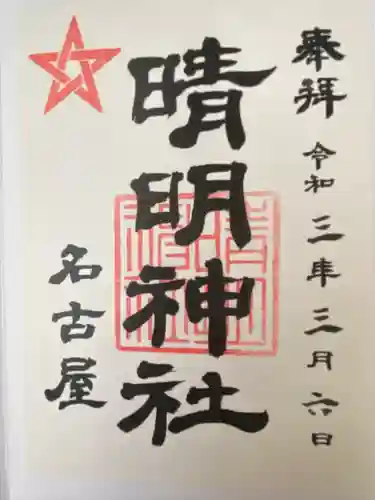 奉拝 令和三年三月六日
晴明神社
名古屋